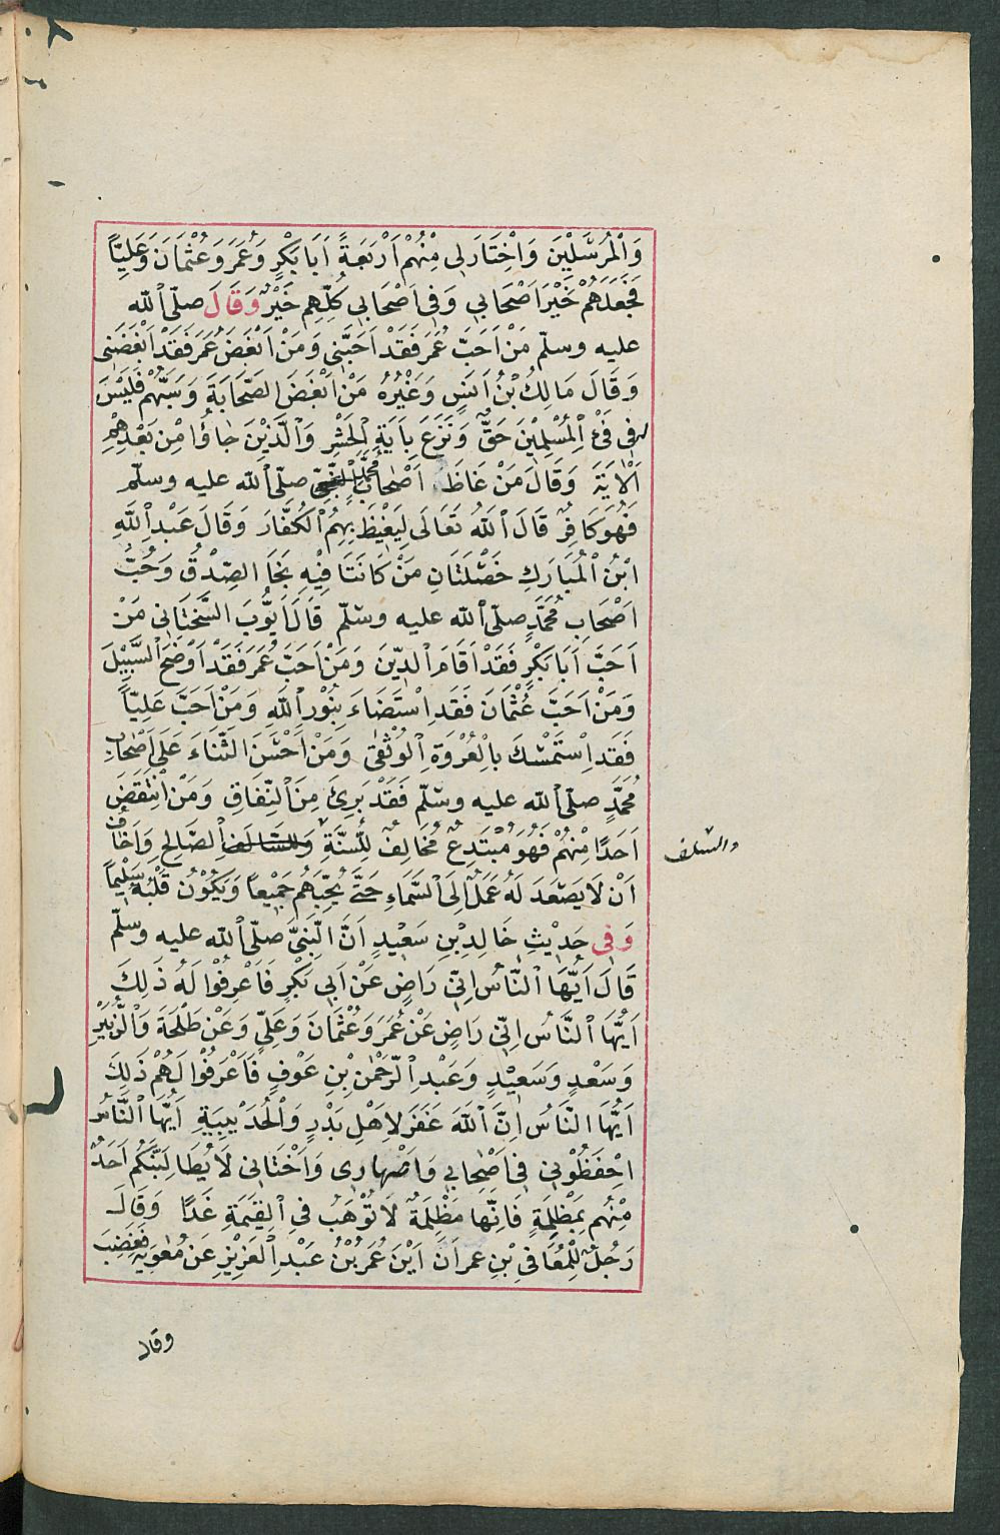 وَالْمُرْسَلِيْنَ وَاخْتَارَ لِى مِنْهُمْ اَرْبَعَةً اَبَا بَكْرٍ وَعُمَرَ وَعُثْمَانَ وَعَلِيّاً
فَجَعَلَهُمْ خَيْرَ اَصْحَابِي وَفِى اَصْحَابِى كُلِّهِمْ خَيْرٌ وَقَالَ صلّى الله
عليه وسلّم مَنْ اَحَبَّ عُمَرَ فَقَدْ اَحَبَّنِى وَمَنْ اَبْغَضَ عُمَرَ فَقَدْ اَبْغَضَنِى
وَقَالَ مَالِكُ بْنُ اَنَسٍ وَغَيْرُهُ مَنْ اَبْغَضَ الصَّحَابَةَ وَسَبَّهُمْ فَلَيْسَ
لَهُ فِى فَىْءِ الْمُسْلِمِيْنَ حَقٌّ وَنَزَعَ بِاٰيَةِ الْحَشْرِ وَالَّذِيْنَ جَاؤُا مِنْ بَعْدِهِمْ
اَلْاٰيَةَ وَقَالَ مَنْ غَاظَ اَصْحَابَ مُحَمَّدٍ صلّى الله عليه وسلّم
فَهُوَ كَافِرٌ قَالَ اللهُ تَعَالَى لِيَغِيْظَ بِهِمُ الْكُفَّارَ وَقَالَ عَبْدُ اللّٰهِ
ابْنُ الْمُبَارَكِ خَصْلَتَانِ مَنْ كَانَتَا فِيْهِ نَجَا الصِّدْقُ وَحُبُّ
اَصْحَابِ مُحَمَّدٍ صلّى الله عليه وسلّم قَالَ اَيُّوبَ السَّخْتِيَانِى مَنْ
اَحَبَّ اَبَا بَكْرٍ فَقَدْ اَقَامَ الدِّينَ وَمَنْ اَحَبَّ عُمَرَ فَقَدْ اَوْضَحَ السَّبِيْلَ
وَمَنْ اَحَبَّ عُثْمَانَ فَقَدِ اسْتَضَاءَ بِنُوْرِ اللّٰهِ وَمَنْ اَحَبَّ عَلِيّاً
فَقَدِ اسْتَمْسَكَ بِالْعُرْوَةِ الْوُثْقٰى وَمَنْ اَحْسَنَ الثَّنَاءَ عَلَى اَصْحَابِ
مُحَمَّدٍ صلّى الله عليه وسلّم فَقَدْ بَرِئَ مِنَ النِّفَاقِ وَمَنْ انْتَقَصَ
اَحَدًا مِنْهُمْ فَهُوَ مُبْتَدِعٌ مُخَالِفٌ لِلسُّنَّةِ الصَّالِحِ وَاَخَافُ
والسلف
اَنْ لَا يَصْعَدَ لَهُ عَمَلٌ اِلَى السَّمَاءِ حَتّٰى يُحِبَّهُمْ جَمِيْعاً وَيَكُوْنَ قَلْبُهُ سَلِيْماً
وَفِى حَدِيْثِ خَالِدِ بْنِ سَعِيْدٍ اَنَّ النَّبِىَّ صلّى الله عليه وسلّم
قَالَ اَيُّهَا النَّاسُ اِنِّى رَاضٍ عَنْ اَبِى بَكْرٍ فَاعْرِفُوْا لَهُ ذٰلِكَ
اَيُّهَا النَّاسُ اِنِّى رَاضٍ عَنْ عُمَرَ وَعُثْمَانَ وَعَلِىٍّ وَعَنْ طَلْحَةَ وَالزُّبَيْرِ
وَسَعْدٍ وَسَعِيْدٍ وَعَبْدِ الرَّحْمٰنِ بْنِ عَوْفٍ فَاعْرِفُوْا لَهُمْ ذٰلِكَ
اَيُّهَا النَّاسُ اِنَّ اللّٰهَ غَفَرَ لِاَهْلِ بَدْرٍ وَالْحُدَيْبِيَةِ اَيُّهَا النَّاسُ
احْفَظُوْنِى فِى اَصْحَابِي وَاَصْهَارِى وَاَخْتَانِى لَا يُطَالِبَنَّكُمْ اَحَدٌ
مِنْهُمْ بِمَظْلِمَةٍ فَاِنَّهَا مَظْلِمَةٌ لَا تُوْهَبُ فِى الْقِيٰمَةِ غَدًا وَقَالَ
رَجُلٌ لِلْمُعَافِى بْنِ عِمْرَانَ اَيْنَ عُمَرُ بْنُ عَبْدِ الْعَزِيْزِ عَنْ مُعٰوِيَةَ فَغَضِبَ
وقال